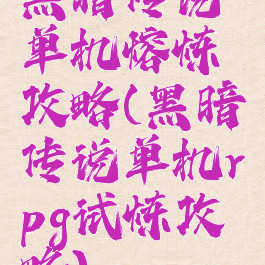 黑暗传说
单机熔炼
攻略(黑暗
传说单机r
pg试炼攻
略)